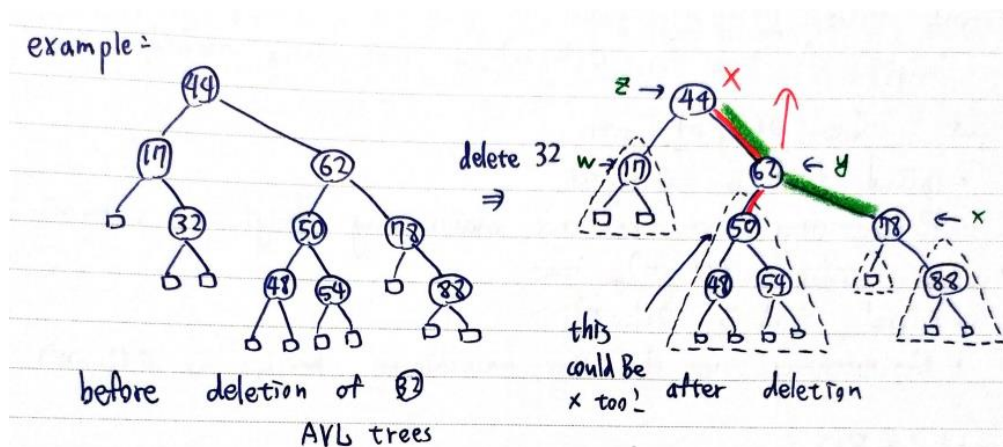 example:
44
17
62
32
50
78
48
54
88
before deletion of 32
AVL trees
delete 32
⇒
z → 44 X
w → 17
62 ← y
50
78 ← x
48
54
88
this
could Be
x too!
after deletion